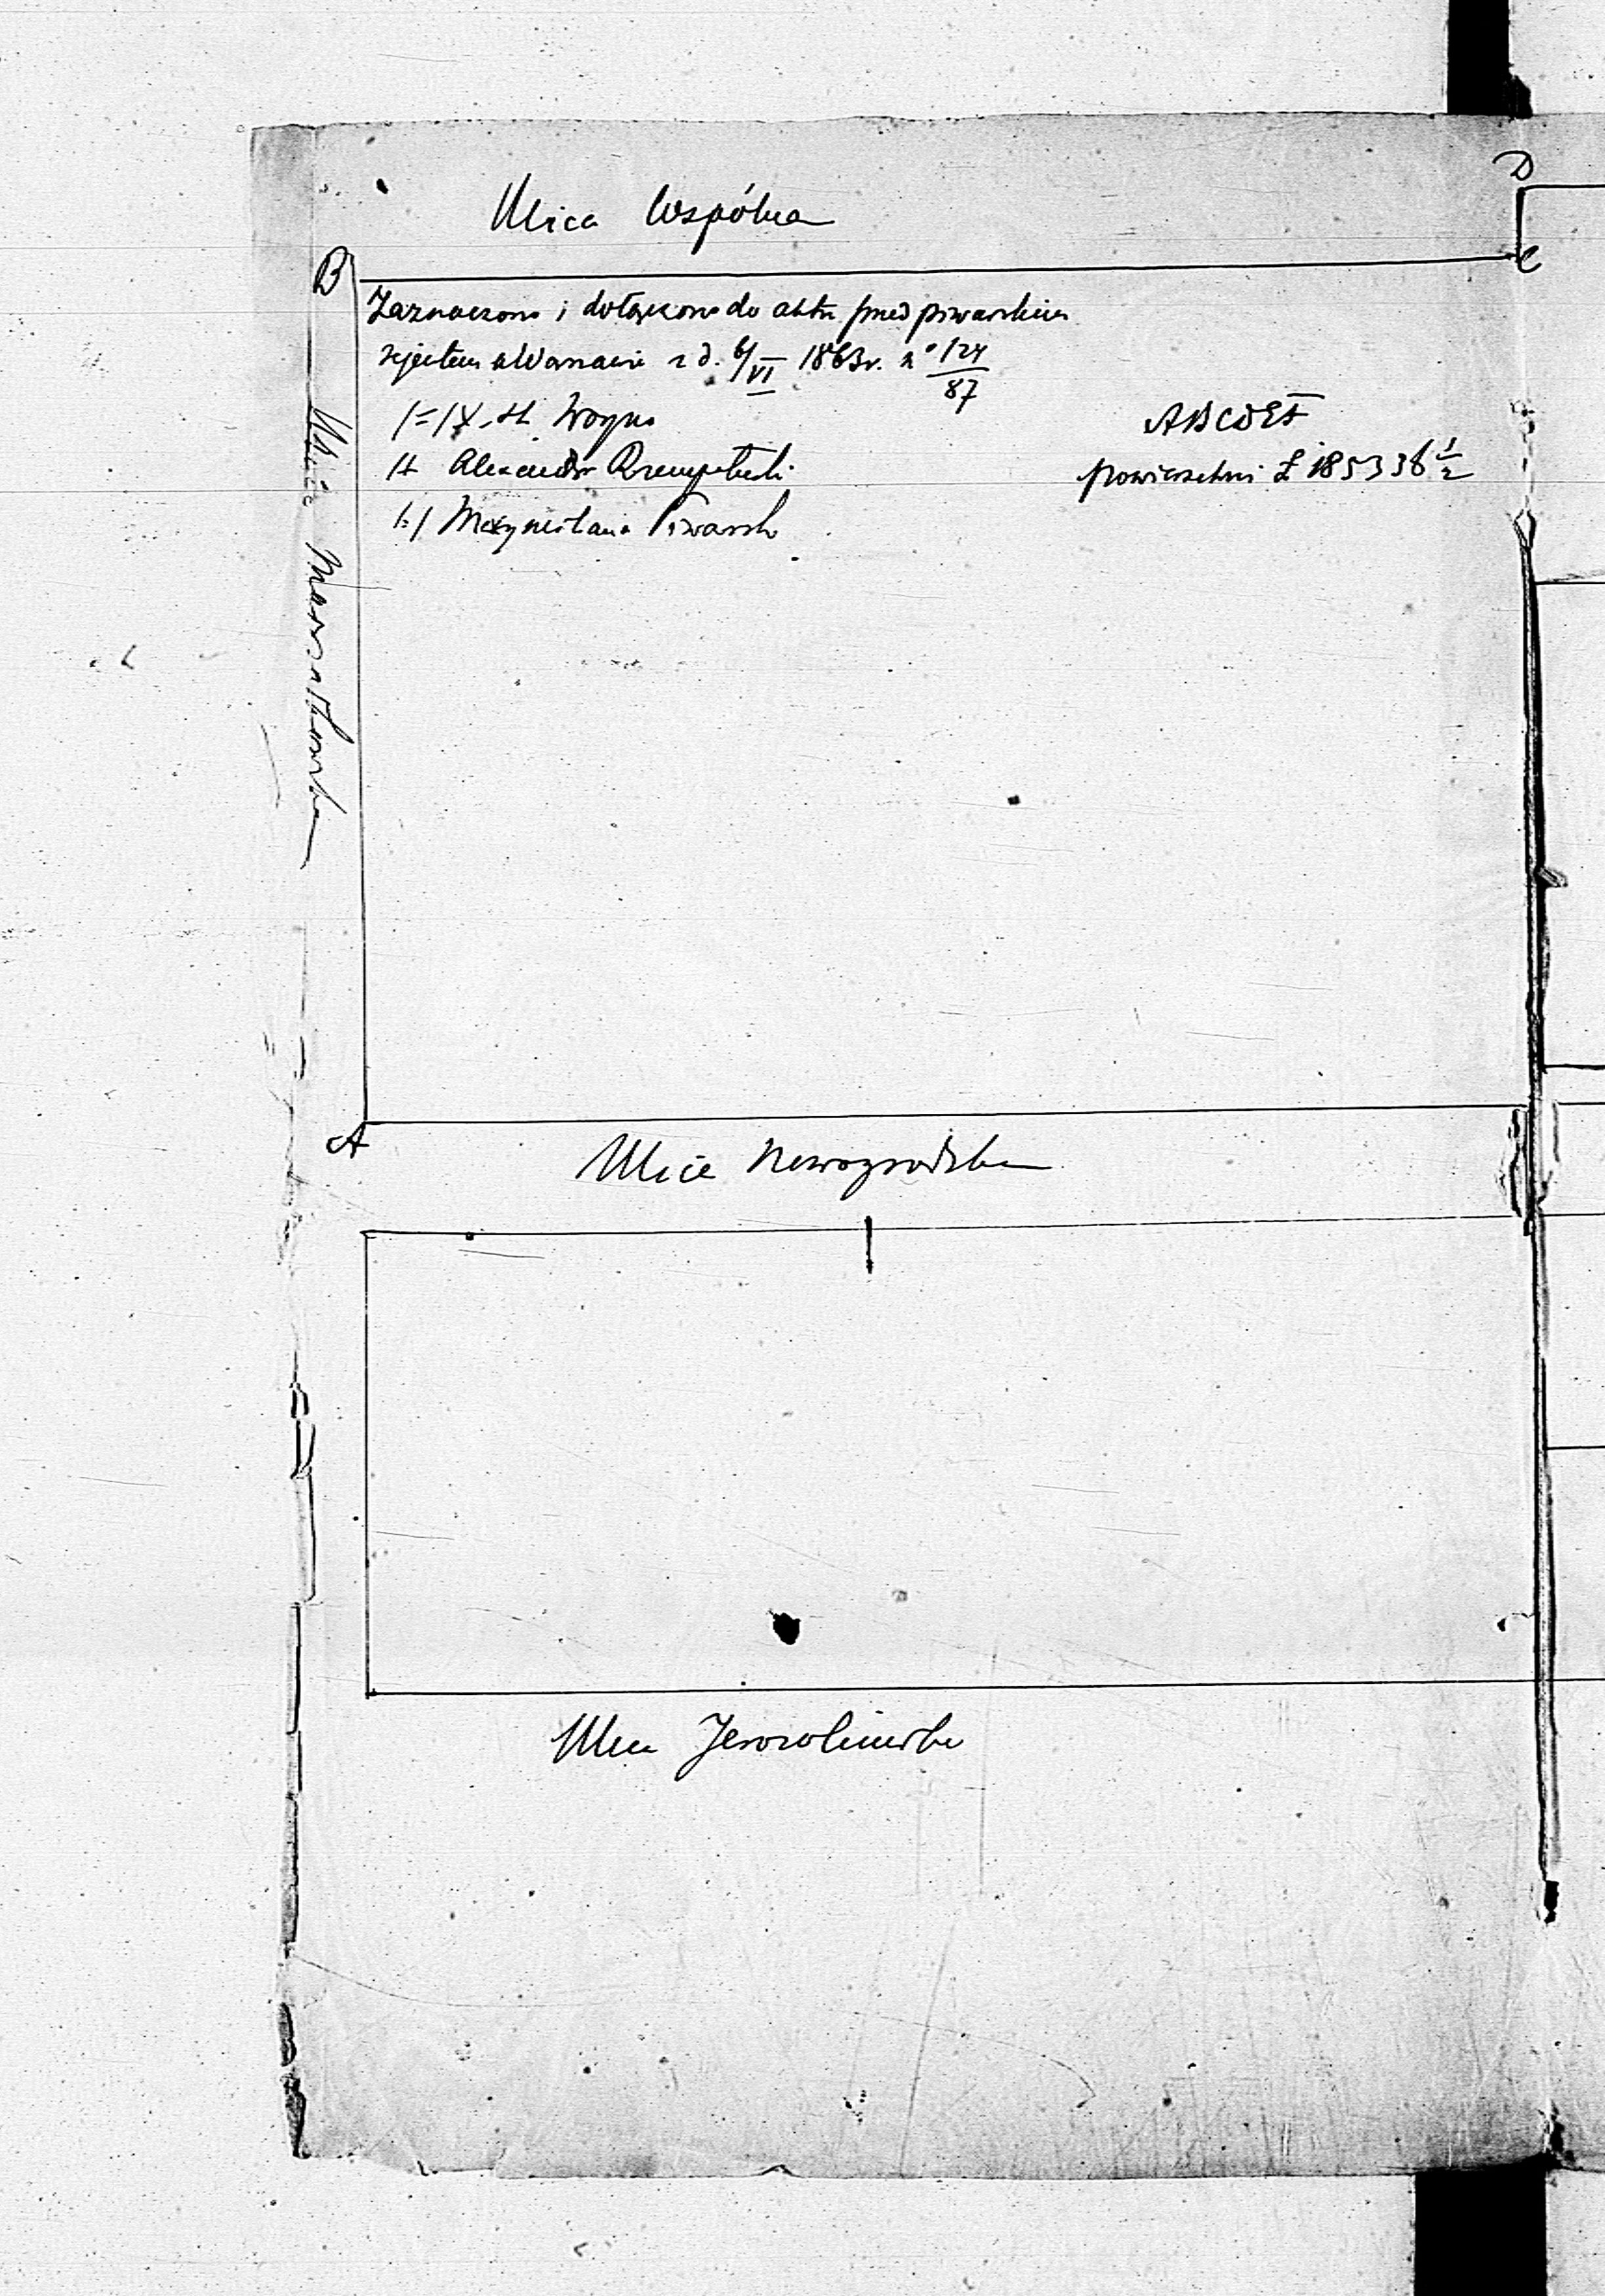 D
Ulica Wspólna
B
C
Zaznaczono i dołączono do aktu przed Piwarskim
rejentem w Warszawie z d. 6/VI 1863 r. n° 124/87
/=/ X. H. Woyno
/=/ Alexander
/=/ Maxymilian Piwarski
ABCDEF
powierzchni Ł 185338 1/2
Ulica Marszałkowska
A
Ulica Nowogrodzka
Ulica Jerozolimska